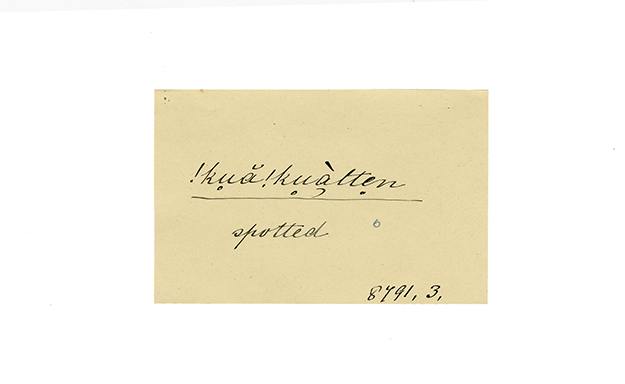 !kụă!kụ̥à̯ttẹn
spotted
8791, 3,